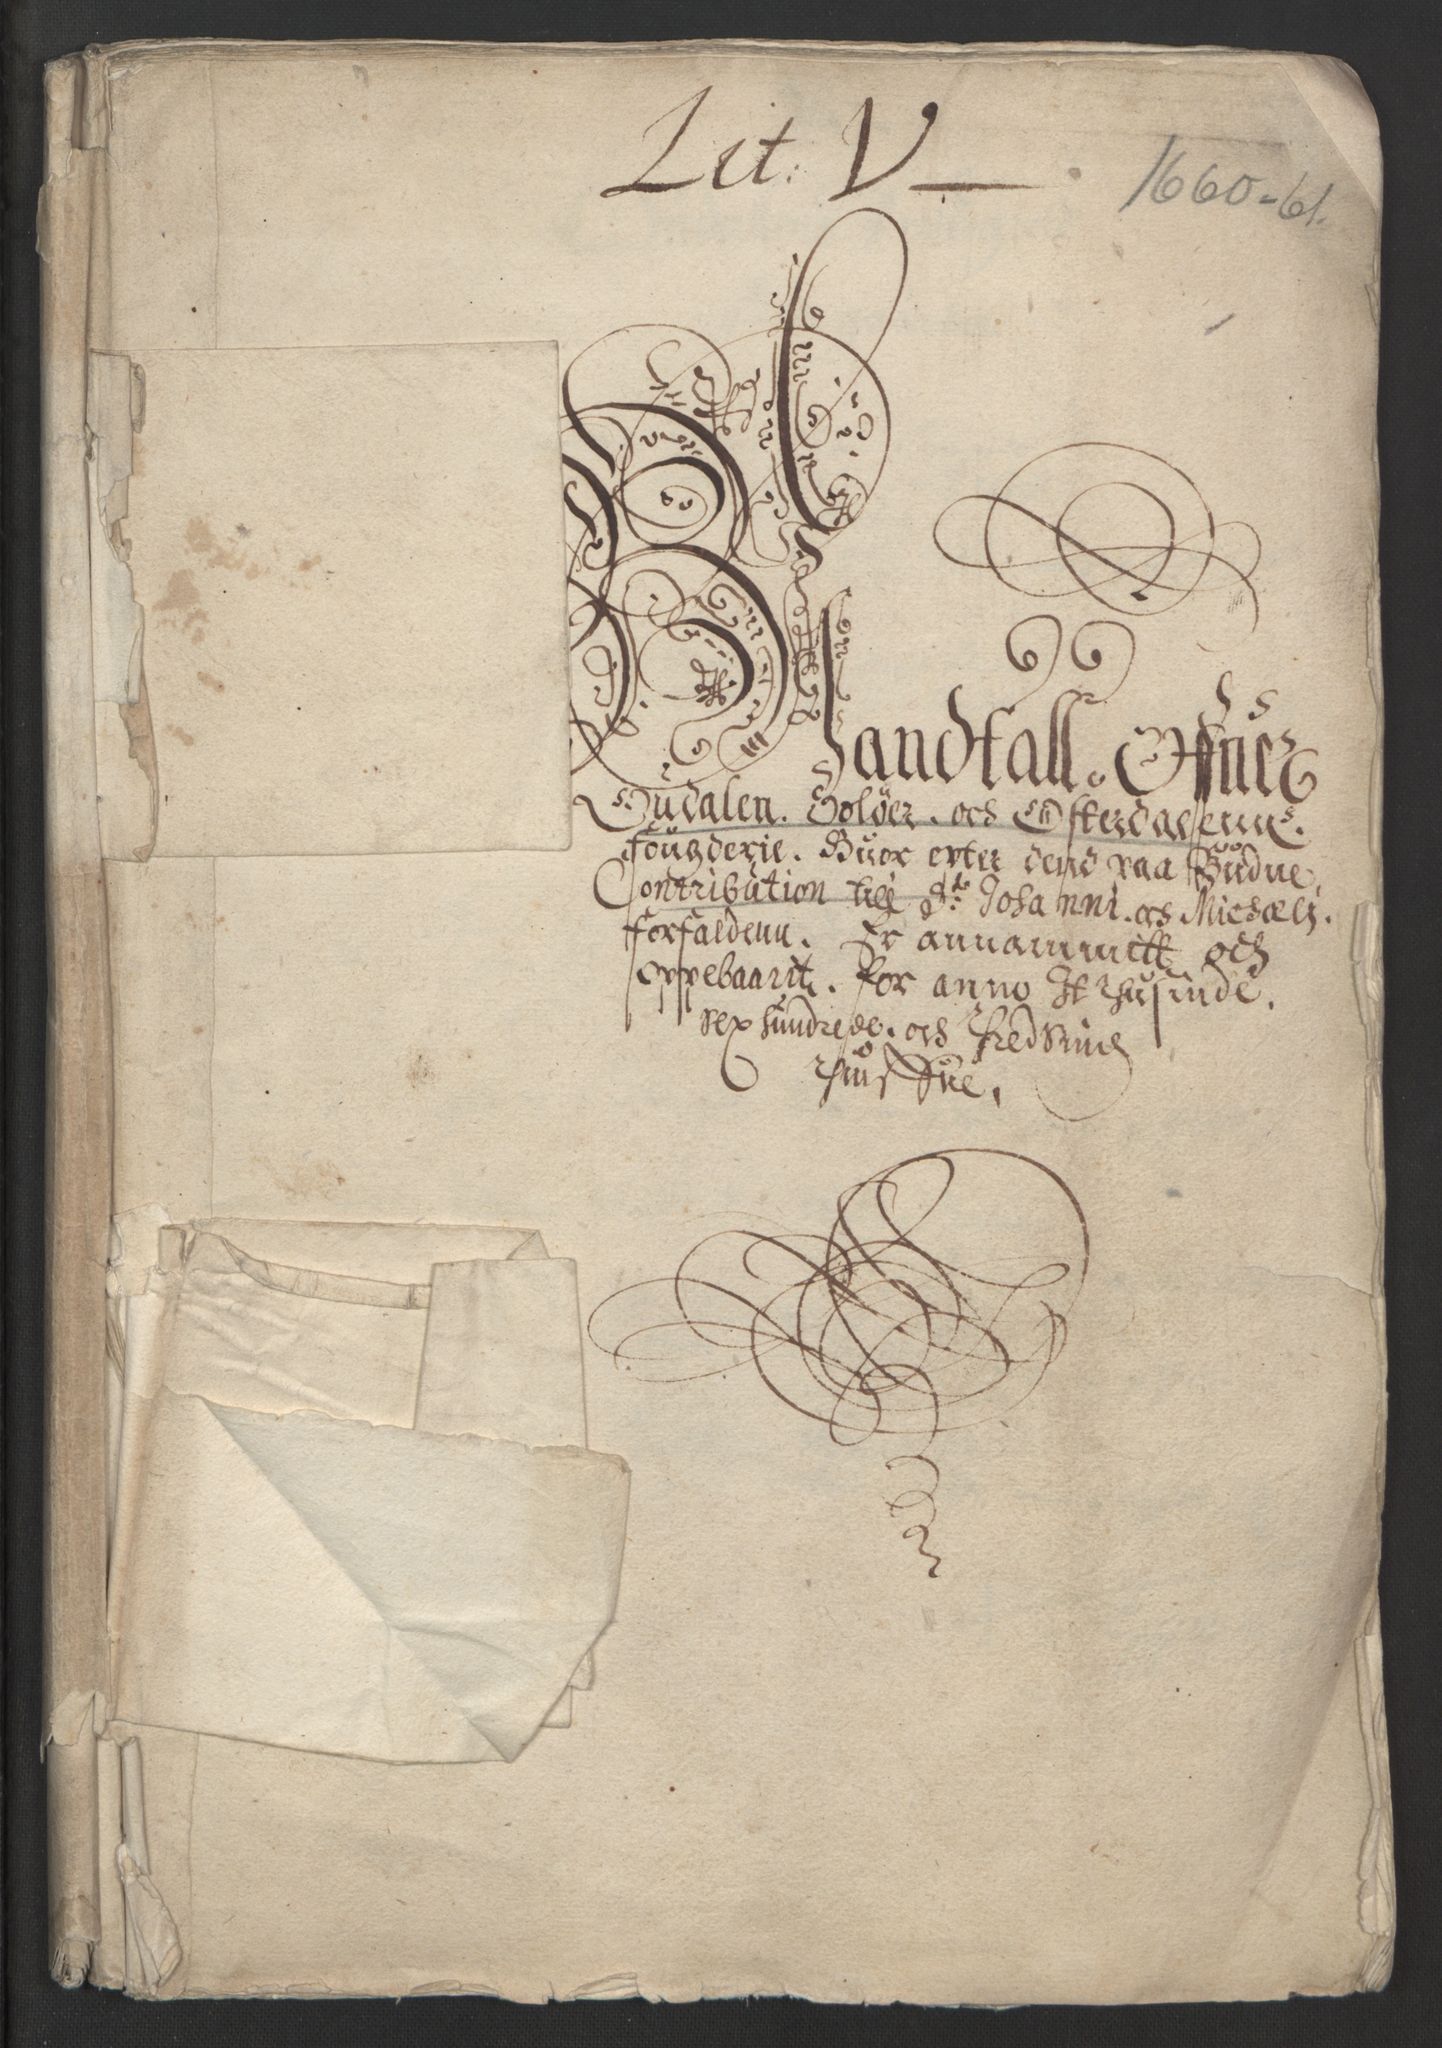 Lit: V
1660-61.
Mandtall. Offuer
Gudalen. Soløer. och Østerdalenns.
fougderie. Huor efter dend paa Budne
Contribution till St: Johanni. och Michaeli.
forfaldenn. Er annammitt och
oppebaarit. for anno It thusinde.
sex hundrede. och tredsinds
thiuffue.